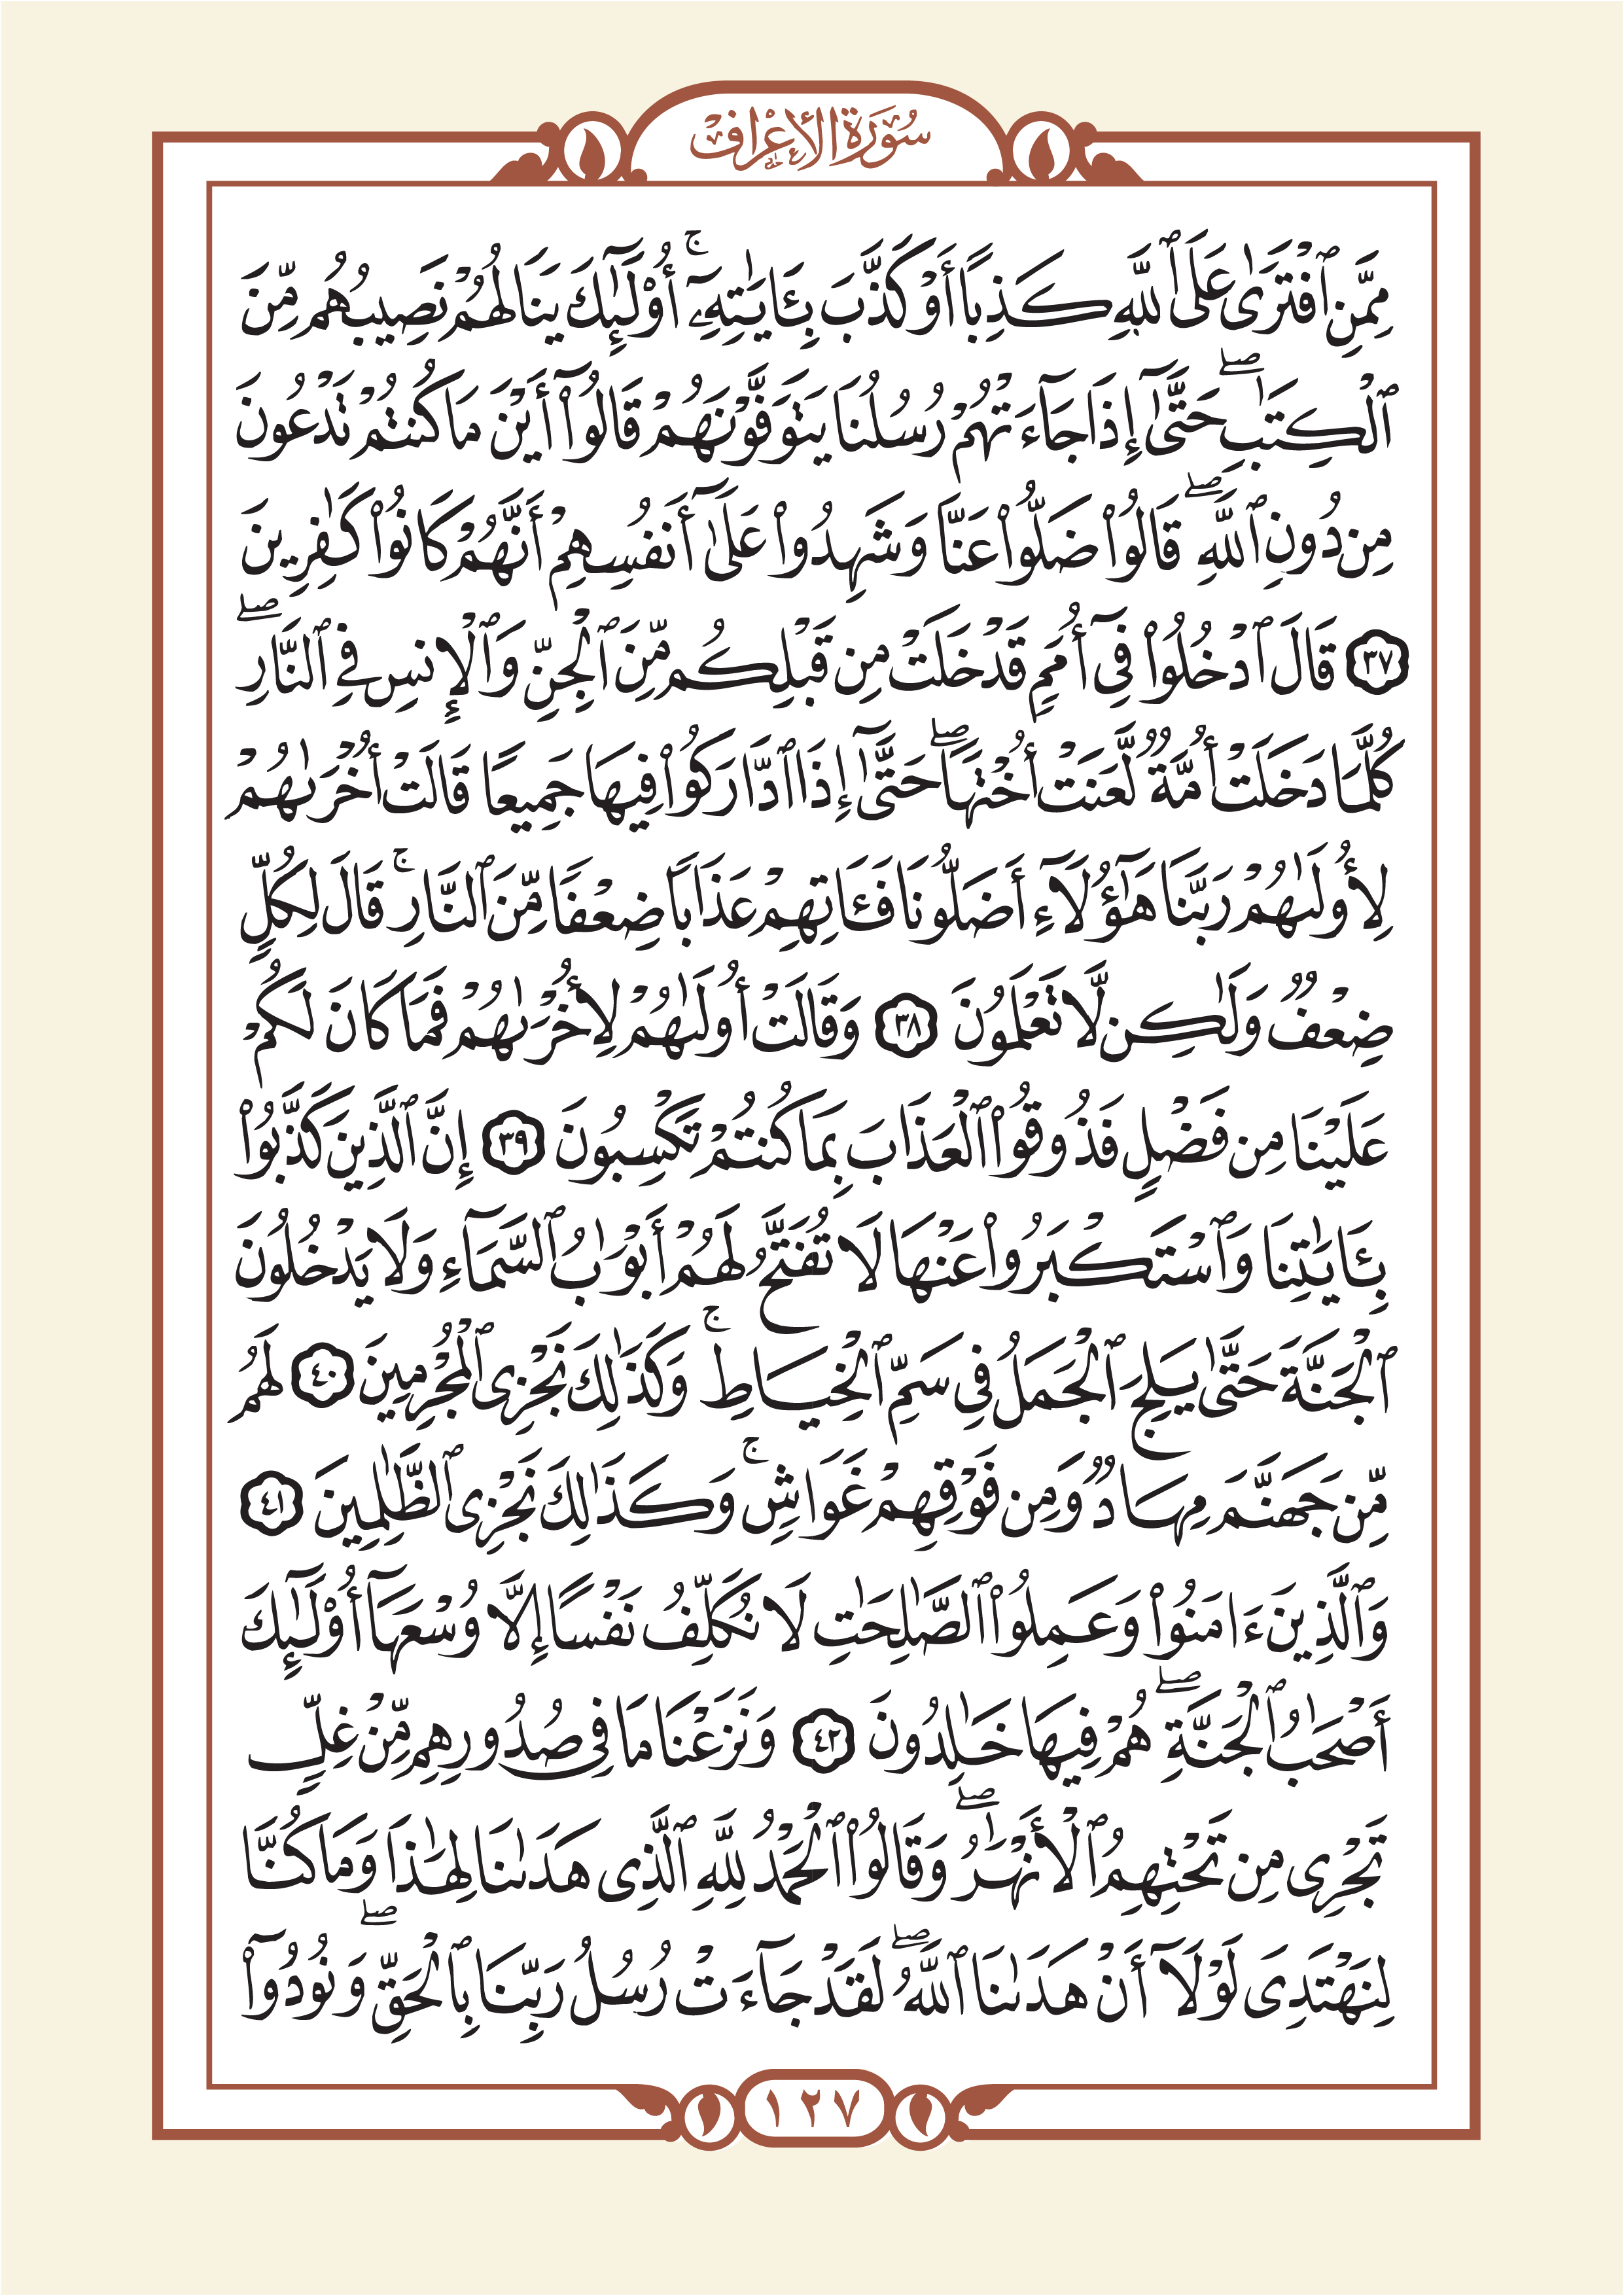 سُورَةُ الأَعْرَافِ
مِمَّنِ ٱفْتَرَىٰ عَلَى ٱللَّهِ كَذِبًا أَوْ كَذَّبَ بِـَٔايَـٰتِهِۦٓ ۚ أُو۟لَـٰٓئِكَ يَنَالُهُمْ نَصِيبُهُم مِّنَ
ٱلْكِتَـٰبِ ۖ حَتَّىٰٓ إِذَا جَآءَتْهُمْ رُسُلُنَا يَتَوَفَّوْنَهُمْ قَالُوٓا۟ أَيْنَ مَا كُنتُمْ تَدْعُونَ
مِن دُونِ ٱللَّهِ ۖ قَالُوا۟ ضَلُّوا۟ عَنَّا وَشَهِدُوا۟ عَلَىٰٓ أَنفُسِهِمْ أَنَّهُمْ كَانُوا۟ كَـٰفِرِينَ
٣٧ قَالَ ٱدْخُلُوا۟ فِىٓ أُمَمٍ قَدْ خَلَتْ مِن قَبْلِكُم مِّنَ ٱلْجِنِّ وَٱلْإِنسِ فِى ٱلنَّارِ ۖ
كُلَّمَا دَخَلَتْ أُمَّةٌ لَّعَنَتْ أُخْتَهَا ۖ حَتَّىٰٓ إِذَا ٱدَّارَكُوا۟ فِيهَا جَمِيعًا قَالَتْ أُخْرَىٰهُمْ
لِأُولَىٰهُمْ رَبَّنَا هَـٰٓؤُلَآءِ أَضَلُّونَا فَـَٔاتِهِمْ عَذَابًا ضِعْفًا مِّنَ ٱلنَّارِ ۚ قَالَ لِكُلٍّ
ضِعْفٌ وَلَـٰكِن لَّا تَعْلَمُونَ ٣٨ وَقَالَتْ أُولَىٰهُمْ لِأُخْرَىٰهُمْ فَمَا كَانَ لَكُمْ
عَلَيْنَا مِن فَضْلٍ فَذُوقُوا۟ ٱلْعَذَابَ بِمَا كُنتُمْ تَكْسِبُونَ ٣٩ إِنَّ ٱلَّذِينَ كَذَّبُوا۟
بِـَٔايَـٰتِنَا وَٱسْتَكْبَرُوا۟ عَنْهَا لَا تُفَتَّحُ لَهُمْ أَبْوَٰبُ ٱلسَّمَآءِ وَلَا يَدْخُلُونَ
ٱلْجَنَّةَ حَتَّىٰ يَلِجَ ٱلْجَمَلُ فِى سَمِّ ٱلْخِيَاطِ ۚ وَكَذَٰلِكَ نَجْزِى ٱلْمُجْرِمِينَ ٤٠ لَهُم
مِّن جَهَنَّمَ مِهَادٌ وَمِن فَوْقِهِمْ غَوَاشٍ ۚ وَكَذَٰلِكَ نَجْزِى ٱلظَّـٰلِمِينَ ٤١
وَٱلَّذِينَ ءَامَنُوا۟ وَعَمِلُوا۟ ٱلصَّـٰلِحَـٰتِ لَا نُكَلِّفُ نَفْسًا إِلَّا وُسْعَهَآ أُو۟لَـٰٓئِكَ
أَصْحَـٰبُ ٱلْجَنَّةِ ۖ هُمْ فِيهَا خَـٰلِدُونَ ٤٢ وَنَزَعْنَا مَا فِى صُدُورِهِم مِّنْ غِلٍّ
تَجْرِى مِن تَحْتِهِمُ ٱلْأَنْهَـٰرُ ۖ وَقَالُوا۟ ٱلْحَمْدُ لِلَّهِ ٱلَّذِى هَدَىٰنَا لِهَـٰذَا وَمَا كُنَّا
لِنَهْتَدِىَ لَوْلَآ أَنْ هَدَىٰنَا ٱللَّهُ ۖ لَقَدْ جَآءَتْ رُسُلُ رَبِّنَا بِٱلْحَقِّ ۖ وَنُودُوٓا۟
١٢٧